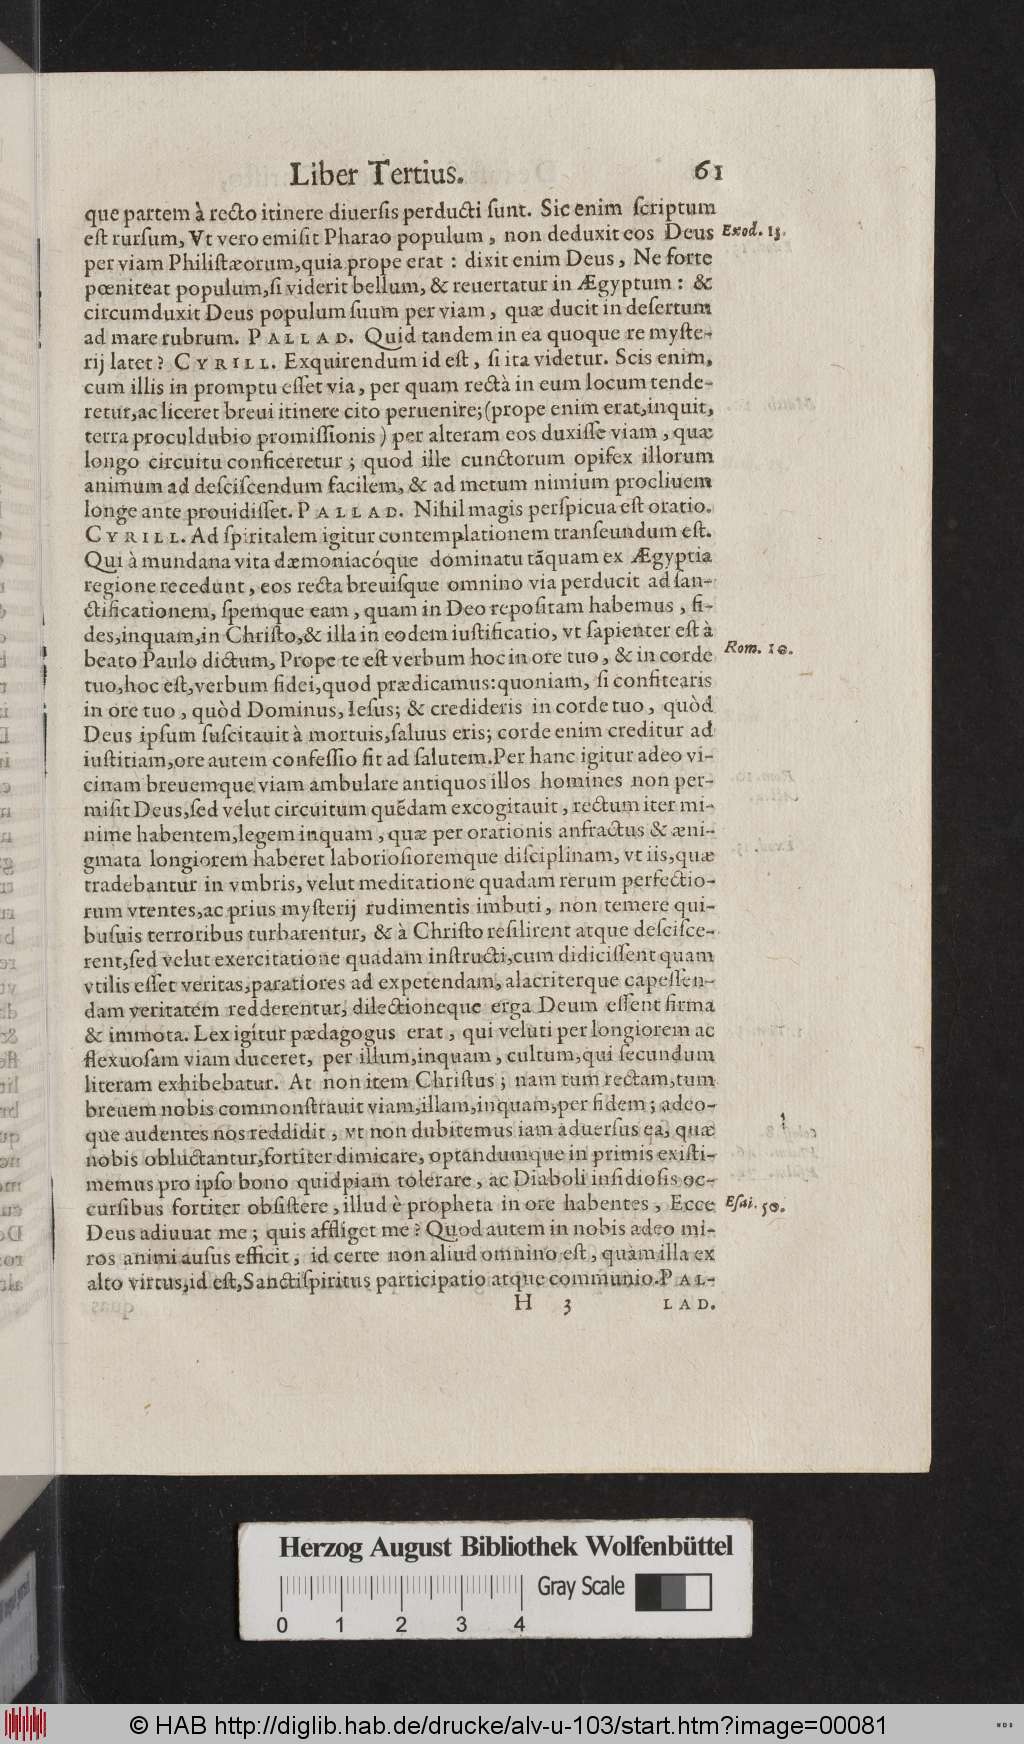 Liber Tertius. 61
que partem à recto itinere diuersis perducti sunt. Sic enim scriptum
est rursum, Vt vero emisit Pharao populum, non deduxit eos Deus Exod. 13.
per viam Philistæorum, quia prope erat : dixit enim Deus, Ne forte
pœniteat populum, si viderit bellum, & reuertatur in Ægyptum : &
circumduxit Deus populum suum per viam, quæ ducit in desertum
ad mare rubrum. PALLAD. Quid tandem in ea quoque re myste-
rij latet? CYRILL. Exquirendum id est, si ita videtur. Scis enim,
cum illis in promptu esset via, per quam rectà in eum locum tende-
retur, ac liceret breui itinere cito peruenire; (prope enim erat, inquit,
terra proculdubio promissionis) per alteram eos duxisse viam, quæ
longo circuitu conficeretur; quod ille cunctorum opifex illorum
animum ad desciscendum facilem, & ad metum nimium procliuem
longe ante prouidisset. PALLAD. Nihil magis perspicua est oratio.
CYRILL. Ad spiritalem igitur contemplationem transeundum est.
Qui à mundana vita dæmoniacóque dominatu tãquam ex Ægyptia
regione recedunt, eos recta breuisque omnino via perducit ad san-
ctificationem, spemque eam, quam in Deo repositam habemus, fi-
des, inquam, in Christo, & illa in eodem iustificatio, vt sapienter est à
beato Paulo dictum, Prope te est verbum hoc in ore tuo, & in corde Rom. 10.
tuo, hoc est, verbum fidei, quod prædicamus: quoniam, si confitearis
in ore tuo, quòd Dominus, Iesus; & credideris in corde tuo, quòd
Deus ipsum suscitauit à mortuis, saluus eris; corde enim creditur ad
iustitiam, ore autem confessio fit ad salutem. Per hanc igitur adeo vi-
cinam breuemque viam ambulare antiquos illos homines non per-
misit Deus, sed velut circuitum quẽdam excogitauit, rectum iter mi-
nime habentem, legem inquam, quæ per orationis anfractus & æni-
gmata longiorem haberet laboriosioremque disciplinam, vt iis, quæ
tradebantur in vmbris, velut meditatione quadam rerum perfectio-
rum vtentes, ac prius mysterij rudimentis imbuti, non temere qui-
busuis terroribus turbarentur, & à Christo resilirent atque descisce-
rent, sed velut exercitatione quadam instructi, cum didicissent quam
vtilis esset veritas, paratiores ad expetendam, alacriterque capessen-
dam veritatem redderentur, dilectioneque erga Deum essent firma
& immota. Lex igitur pædagogus erat, qui veluti per longiorem ac
flexuosam viam duceret, per illum, inquam, cultum, qui secundum
literam exhibebatur. At non item Christus; nam tum rectam, tum
breuem nobis commonstrauit viam, illam, inquam, per fidem; adeo-
que audentes nos reddidit, vt non dubitemus iam aduersus ea, quæ
nobis obluctantur, fortiter dimicare, optandumque in primis existi-
memus pro ipso bono quidpiam tolerare, ac Diaboli insidiosis oc-
cursibus fortiter obsistere, illud è propheta in ore habentes, Ecce Esai. 50.
Deus adiuuat me; quis affliget me? Quod autem in nobis adeo mi-
ros animi ausus efficit, id certe non aliud omnino est, quàm illa ex
alto virtus, id est, Sancti spiritus participatio atque communio. PAL-
H 3 LAD.
Herzog August Bibliothek Wolfenbüttel
Gray Scale
0 1 2 3 4
© HAB http://diglib.hab.de/drucke/alv-u-103/start.htm?image=00081